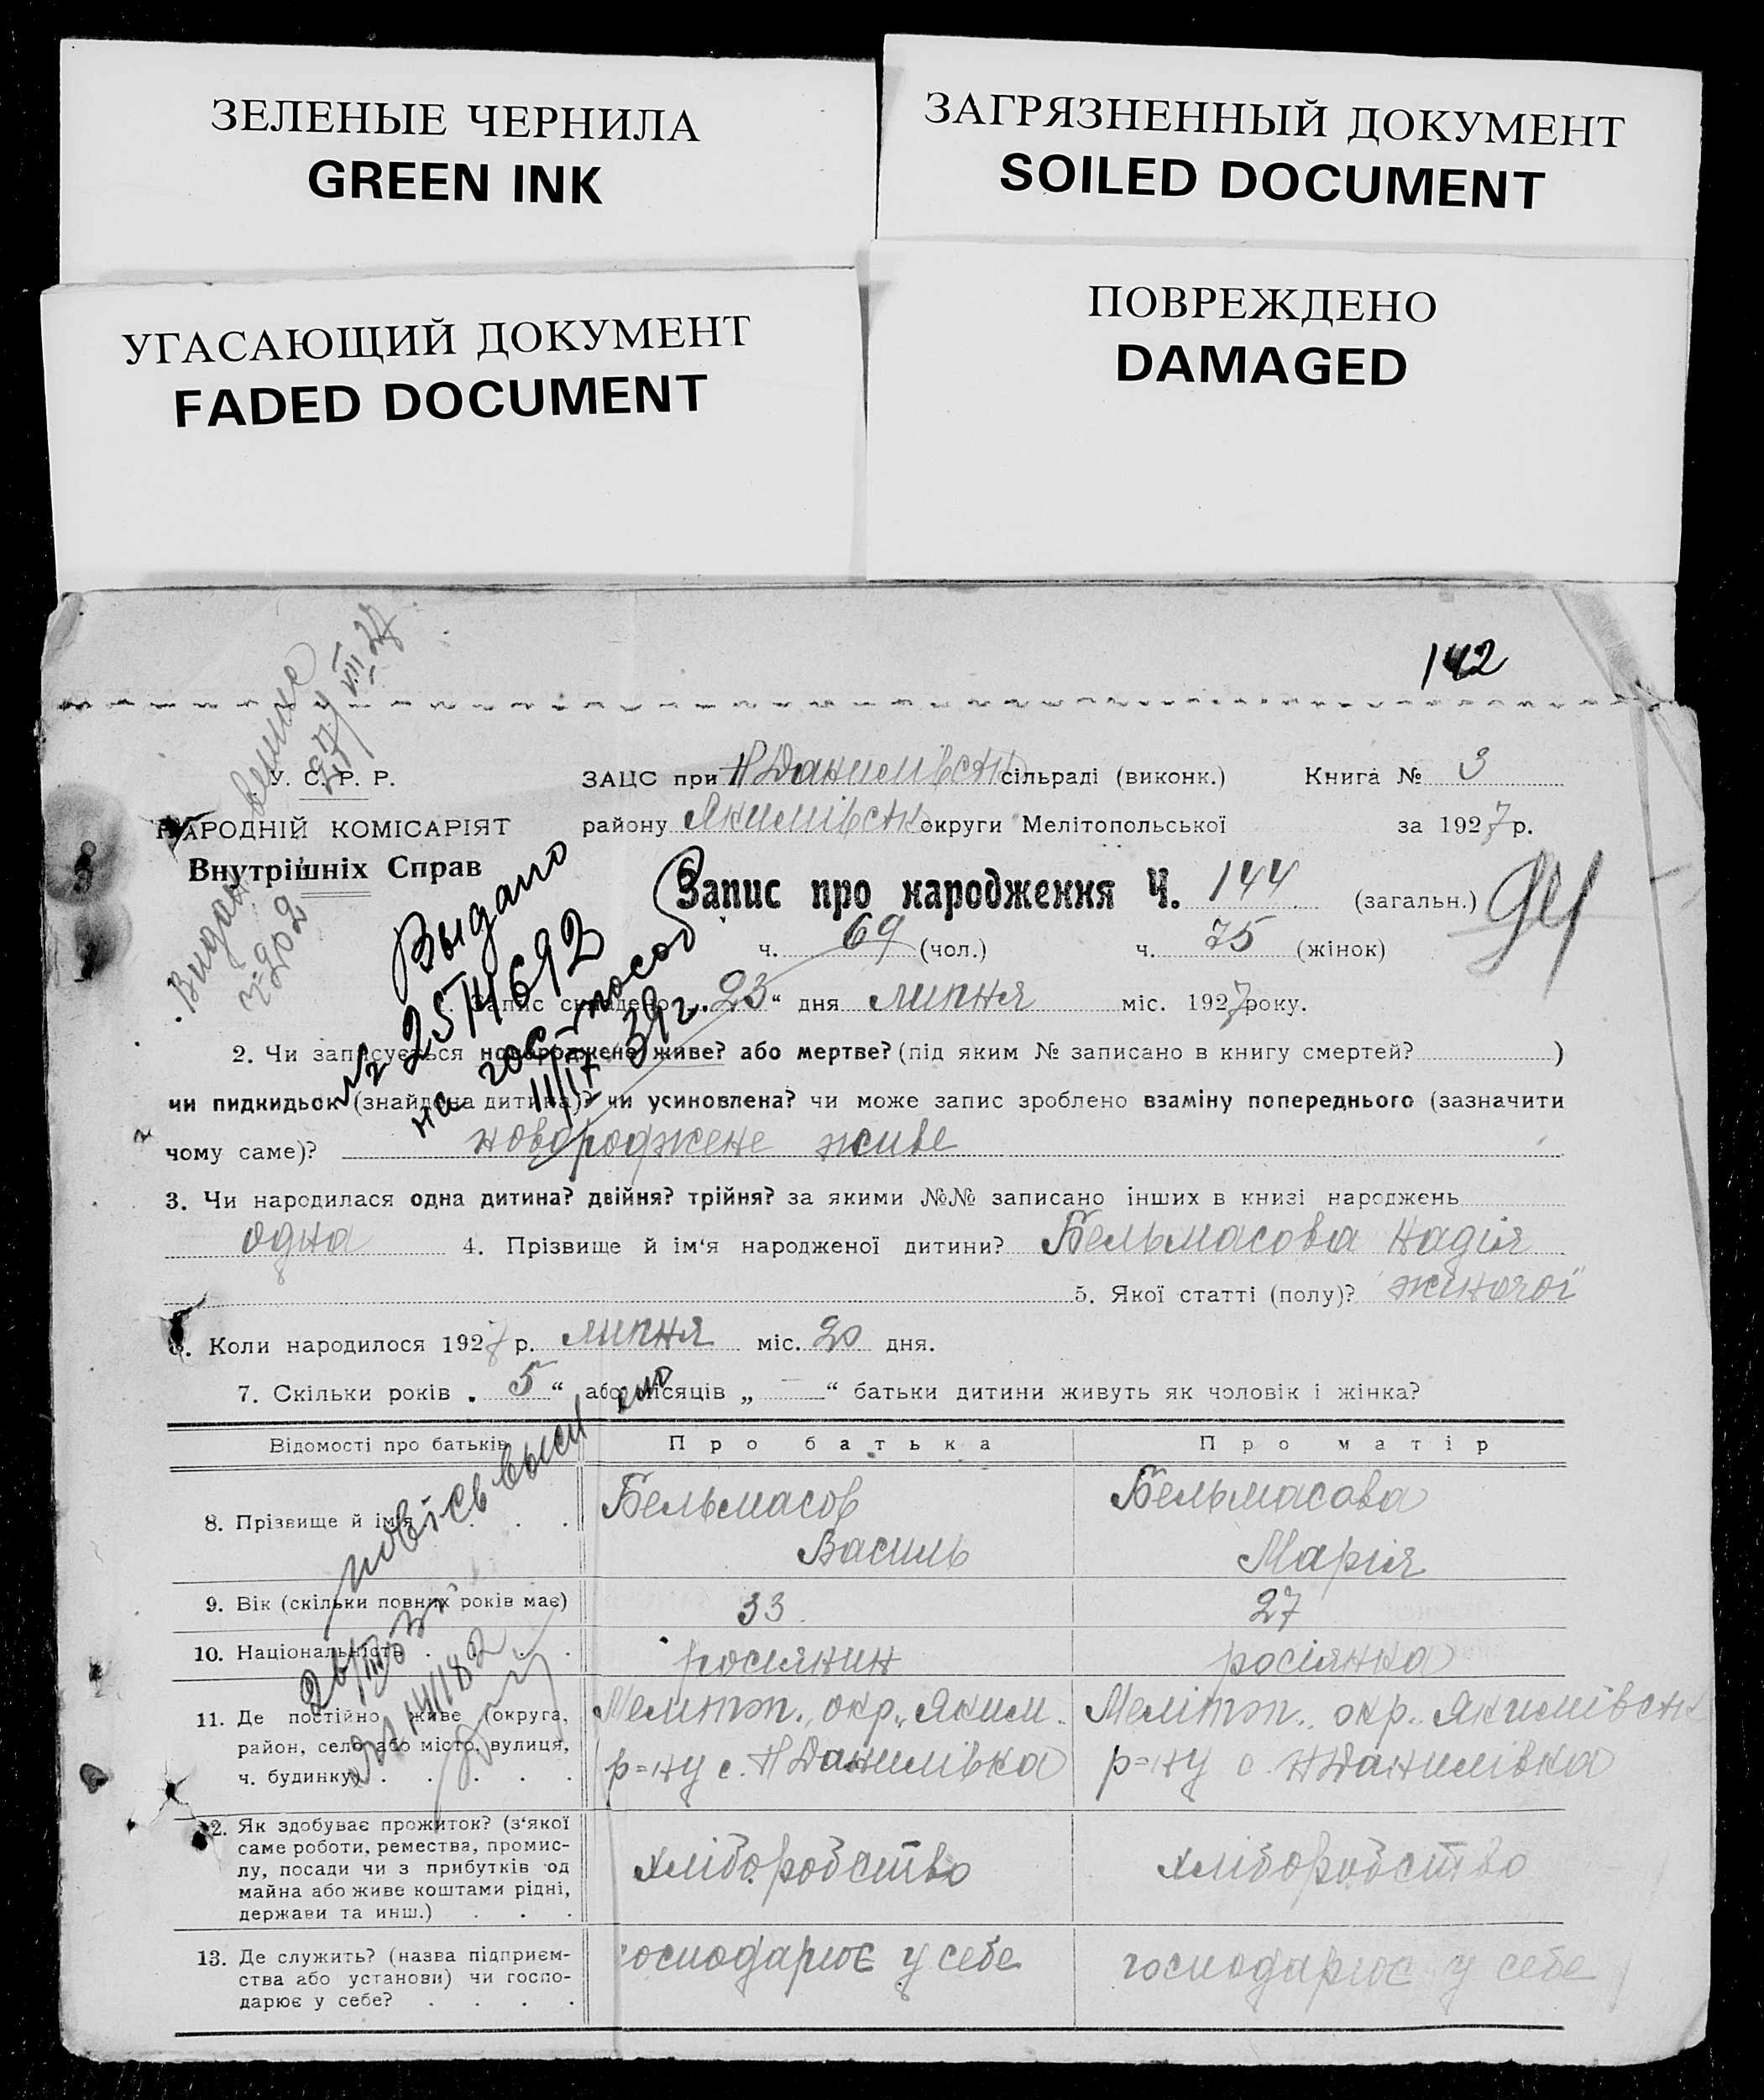 ЗЕЛЕНЫЕ ЧЕРНИЛА
GREEN INK
ЗАГРЯЗНЕННЫЙ ДОКУМЕНТ
SOILED DOCUMENT
УГАСАЮЩИЙ ДОКУМЕНТ
FADED DOCUMENT
ПОВРЕЖДЕНО
DAMAGED
142
У. С. Р. Р.
НАРОДНІЙ КОМІСАРІЯТ
Внутрішніх Справ
ЗАЦС при Н Данилівськ сільраді (виконк.) Книга № 3
району Якимівськ округи Мелітопольської за 1927 р.
Запис про народження Ч. 144 (загальн.)
ч. 69 (чол.) ч. 75 (жінок)
Выдано
№ 2574692
на гос. пособ
11/IV 39 г.
Запис складено „ 23 “ дня липня міс. 1927 року.
2. Чи записується новороджене живе? або мертве? (під яким № записано в книгу смертей? )
чи пидкидьок (знайдена дитина)? чи усиновлена? чи може запис зроблено взаміну попереднього (зазначити
чому саме)? новороджене живе
3. Чи народилася одна дитина? двійня? трійня? за якими №№ записано інших в книзі народжень
одна 4. Прізвище й ім‘я народженої дитини? Бельмасова Надія
5. Якої статті (полу)? жіночої
6. Коли народилося 1927 р. липня міс. 20 дня.
7. Скільки років „ 5 “ або місяців „ — “ батьки дитини живуть як чоловік і жінка?
Відомості про батьків Про батька Про матір
8. Прізвище й ім‘я . . . Бельмасов Василь Бельмасова Марія
9. Вік (скільки повних років має) 33 27
10. Національність . . . росіянин росіянка
11. Де постійно живе (округа,
район, село або місто, вулиця,
ч. будинку) . . . . .
Меліт. окр., Яким.
р=ну с. Н Данилівка
Меліт. окр. Якимівськ
р=ну с. Н Данилівка
12. Як здобуває прожиток? (з‘якої
саме роботи, ремества, промис-
лу, посади чи з прибутків од
майна або живе коштами рідні,
держави та инш.) . . .
хліборобство хліборобство
13. Де служить? (назва підприєм-
ства або установи) чи госпо-
дарює у себе? . . . .
господарює у себе господарює у себе